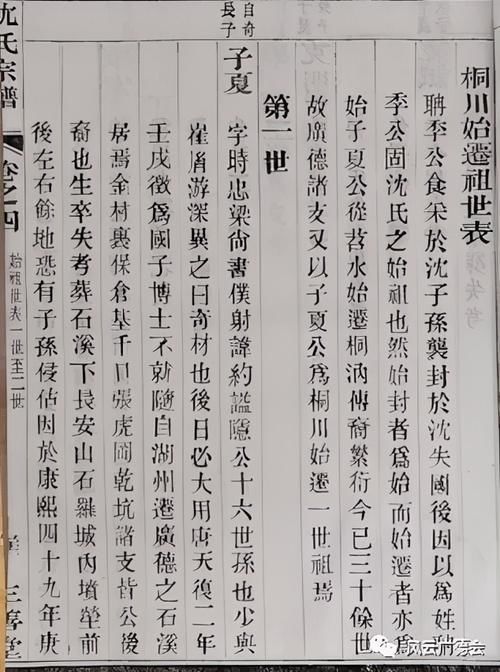 桐川始遷祖世表
聃季公食采於沈子孫襲封於沈失國後因以爲姓聃
季公固沈氏之始祖也然始封者爲始而始遷者亦爲
始子夏公從苕水始遷桐汭傳裔繁衍今已三十餘世
故廣德諸支又以子夏公爲桐川始遷一世祖焉
第一世
自奇
長子
子夏 字時忠梁尚書僕射諱約謚隱公十六世孫也少與
崔屑游深異之曰奇材也後日必大用唐天復二年
壬戌徵爲國子博士不就隨自湖州遷廣德之石溪
居焉金村裏保倉基千口張虎岡乾坑諸支皆公後
裔也生卒失考葬石溪下長安山石羅城內墳塋前
後左右餘地恐有子孫侵佔因於康熙四十九年庚
沈氏宗譜
卷之四
始祖世表一世至二世
三善堂
风云沈秀会